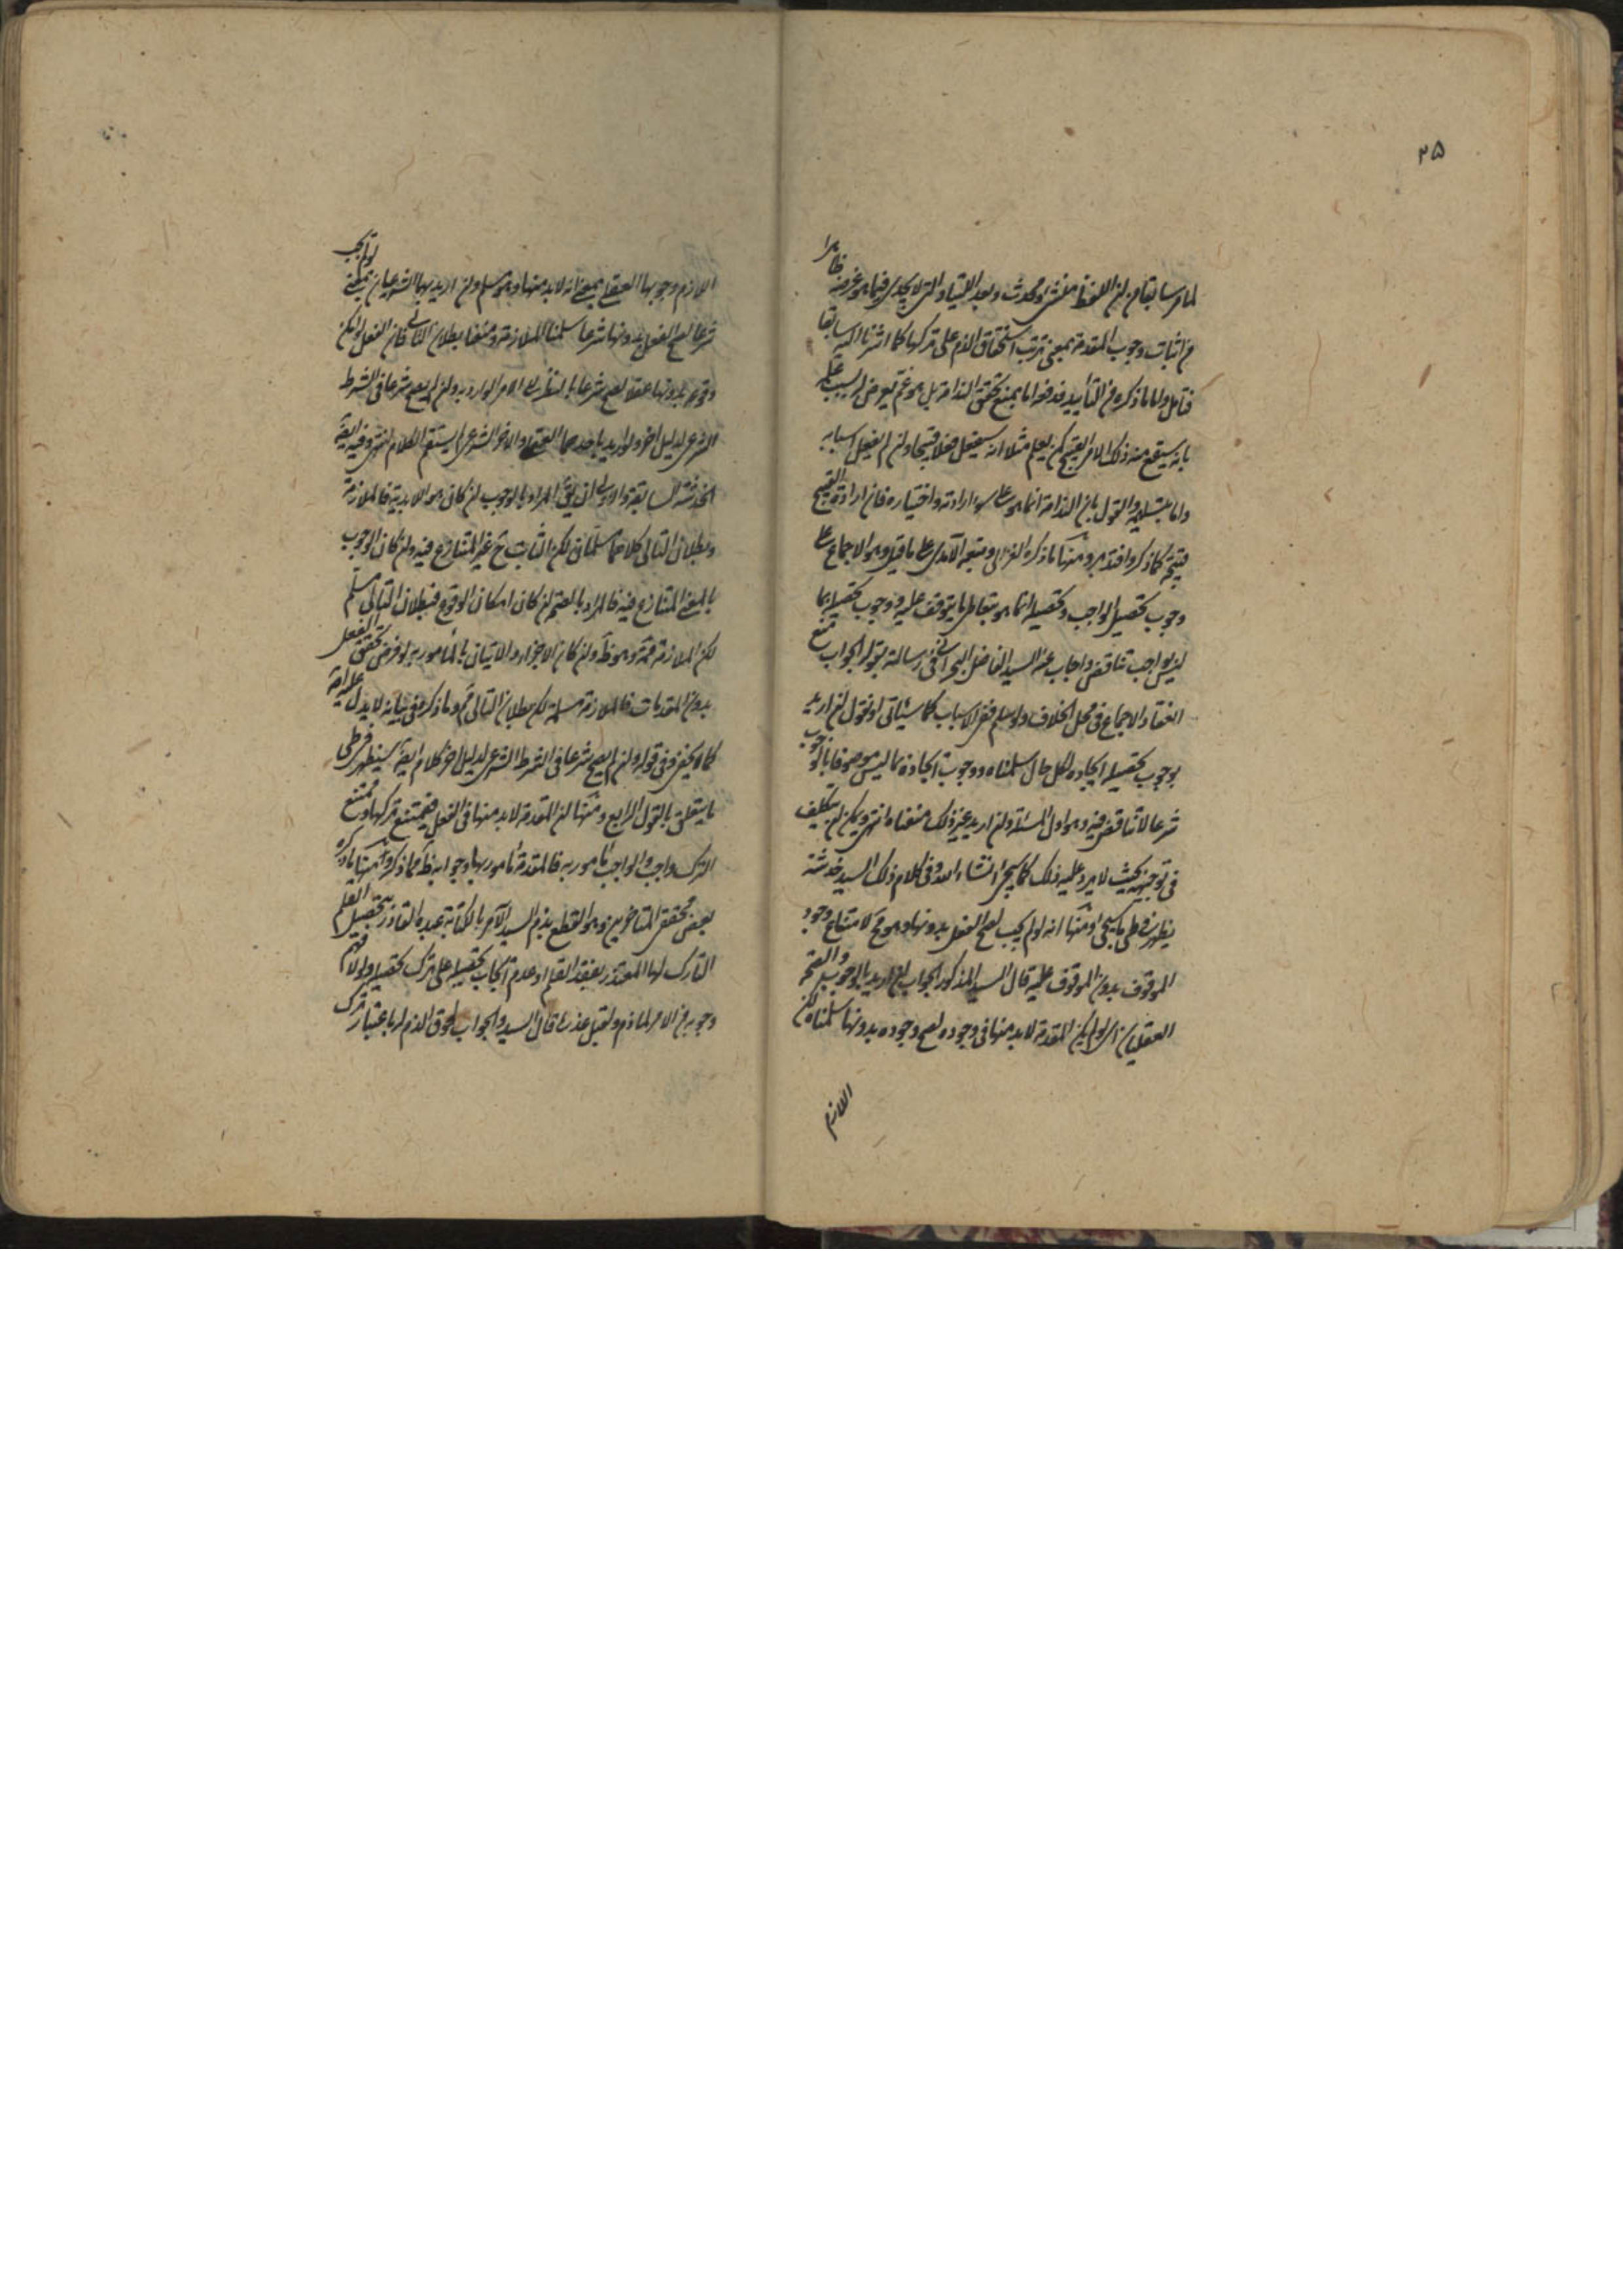 ۲۵
لما مر سابقا من ان اللفظ منشئ ومحدث وبعد اللتيا والتي لا يجدي فيما هو غرضه ظاهرا
من اثبات وجوب المقدمة بمعنى ترتب استحقاق الذم على تركها كما اشرنا اليه سابقا
فتأمل واما ما ذكره في التأييد فمدفوع اما بمنع تحقق الذامة بل هو غم يعرض له بسبب علمه
بانه سيقع منه ذلك الامر القبيح كمن يعلم مثلا انه سيفعل فعلا قبيحا وان لم يفعل اسبابه
واما بتسليمه والقول بان الذامة انما هو على سوء ارادته واختياره فان ارادة القبيح
قبيحة كما ذكروا فتدبر ومنها ما ذكره الغزالي وتبعه الآمدي على ما قيل وهو الاجماع على
وجوب تحصيل الواجب وتحصيله انما هو بتعاطي ما يتوقف عليه ووجوب تحصيله بما
ليس بواجب تناقض واجاب عنه السيد الفاضل البحراني في رسالته بقوله الجواب منع
انعقاد الاجماع في محل الخلاف ولو سلم ففي الاسباب كما سيأتي او نقول ان اريد
بوجوب تحصيله ايجاده بكل حال سلمناه ووجوب ايجاده بما ليس موصوفا بالوجوب
شرعا لا تناقض فيه وهو اول المسئلة وان اريد غير ذلك منعناه انتهى ويمكن ان يتكلف
في توجيهه بحيث لا يرد عليه ذلك كما سيجئ انشاء الله وفي كلام ذلك السيد خدشة
يظهر في طي ما سيجئ ومنها انه لو لم يجب لصح الفعل بدونها وهو مح لامتناع وجود
الموقوف بدون الموقوف عليه قال السيد المذكور الجواب ان اريد بالوجوب والصحة
العقليان اي لو لم يكن المقدمة لا بد منها في وجوده لصح وجوده بدونها سلمناه لكن
اللازم
اللازم وجوبها العقلي بمعنى انه لا بد منها وهو مسلم وان اريد بهما الشرعيان بمعنى لو لم يجب
شرعا لصح الفعل بدونها شرعا سلمنا الملازمة ومنعنا بطلان التالي فان الفعل لو امكن
وقوعه بدونها عقلا لصح شرعا بالنظر الى الامر الوارد به وان لم يصح شرعا في الشرط
الشرعي لدليل اخر ولو اريد باحدهما العقلي والاخر الشرعي لم يستقم الكلام انتهى وفيه ايضا
الخدشة السابقة والاولى ان يقال المراد بالوجوب ان كان هو اللابدية فالملازمة
وبطلان التالي كلاهما مسلمان لكن الثابت ح غير المتنازع فيه وان كان الوجوب
بالمعنى المتنازع فيه فالمراد بالصحة ان كان امكان الوقوع فبطلان التالي مسلم
لكن الملازمة ممنوعة وهو ظ وان كان الاجزاء والاتيان بالمأمور به لو فرض تحقق الفعل
بدون المقدمات فالملازمة مسلمة لكن بطلان التالي مم وما ذكر في بيانه لا يدل عليه اصلا
كما لا يخفى وفي قوله وان لم يصح شرعا في الشرط الشرعي لدليل اخر كلام ايضا سيظهر في طي
ما يتعلق بالقول الرابع ومنها ان المقدمة لا بد منها في الفعل فيمتنع تركها وممتنع
الترك واجب والواجب مأمور به فالمقدمة مأمور بها وجوابه ظ مما ذكروا ومنها ما ذكره
بعض محققي المتأخرين وهو القطع بذم السيد الآمر بالكتابة عبده القادر بتحصيل القلم
التارك لها المعتذر بفقد القلم وعدم ايجاب تحصيله على ترك تحصيله ولولا فهم
وجوبه من الامر لما ذم ولقبل عذره قال السيد والجواب لحوق الذم له باعتبار ترك